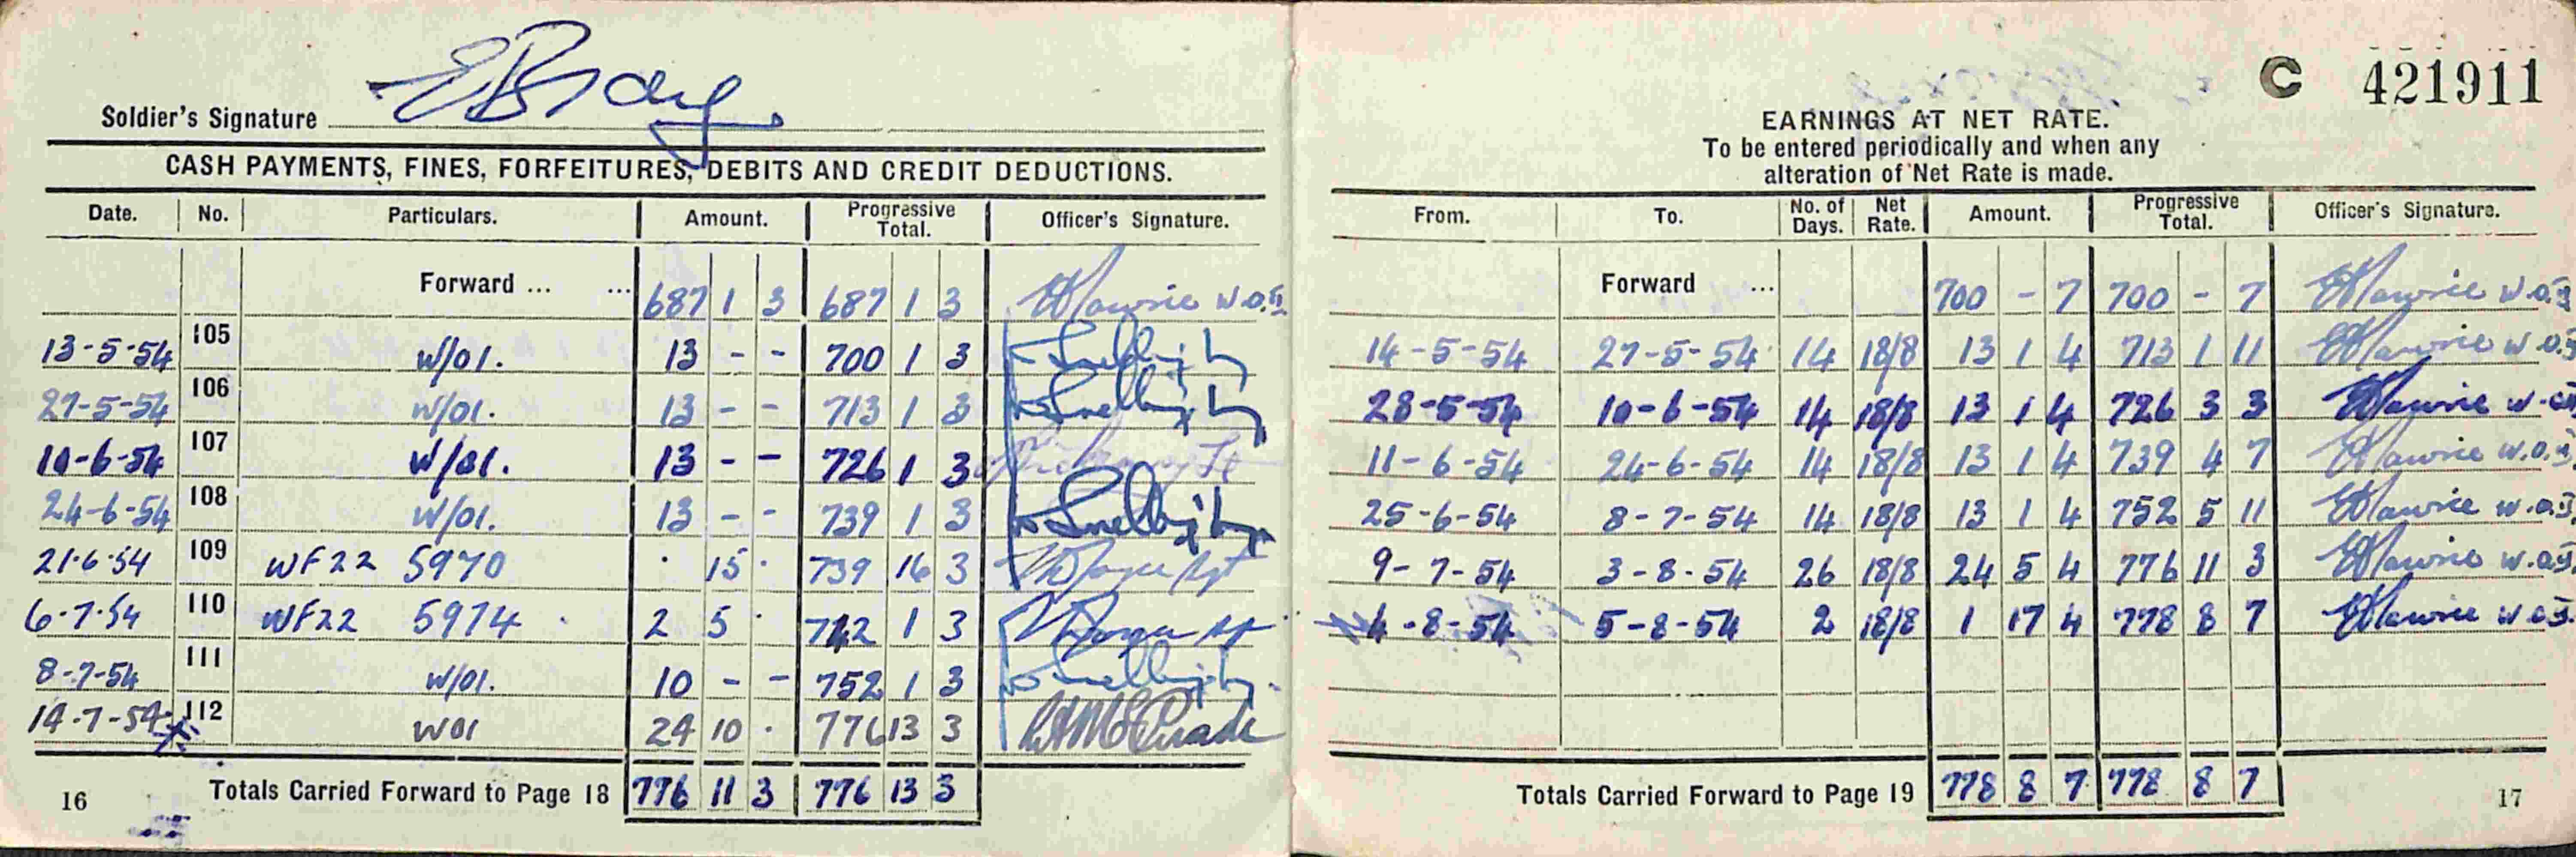 Soldier's Signature E Bray
CASH PAYMENTS, FINES, FORFEITURES, DEBITS AND CREDIT DEDUCTIONS.
Date. No. Particulars. Amount. Progressive Total. Officer's Signature.
Forward ... ... 687 1 3 687 1 3 W.O.II
13-5-54 105 W/01. 13 - - 700 1 3
27-5-54 106 W/01. 13 - - 713 1 3
10-6-54 107 W/01. 13 - - 726 1 3
24-6-54 108 W/01. 13 - - 739 1 3
21.6.54 109 WF22 5970 . 15 . 739 16 3 Sgt
6.7.54 110 WF22 5974 2 5 . 742 1 3
8-7-54 111 W/01. 10 - - 752 1 3
14-7-54 112 W01 24 10 . 776 13 3
Totals Carried Forward to Page 18 776 11 3 776 13 3
16
C 421911
EARNINGS AT NET RATE.
To be entered periodically and when any
alteration of Net Rate is made.
From. To. No. of Days. Net Rate. Amount. Progressive Total. Officer's Signature.
Forward ... 700 - 7 700 - 7 W.O.II
14-5-54 27-5-54 14 18/8 13 1 4 713 1 11 W.O.II
28-5-54 10-6-54 14 18/8 13 1 4 726 3 3 W.O.II
11-6-54 24-6-54 14 18/8 13 1 4 739 4 7 W.O.II
25-6-54 8-7-54 14 18/8 13 1 4 752 5 11 W.O.II
9-7-54 3-8-54 26 18/8 24 5 4 776 11 3 W.O.II
4-8-54 5-8-54 2 18/8 1 17 4 778 8 7 W.O.II
Totals Carried Forward to Page 19 778 8 7 778 8 7
17